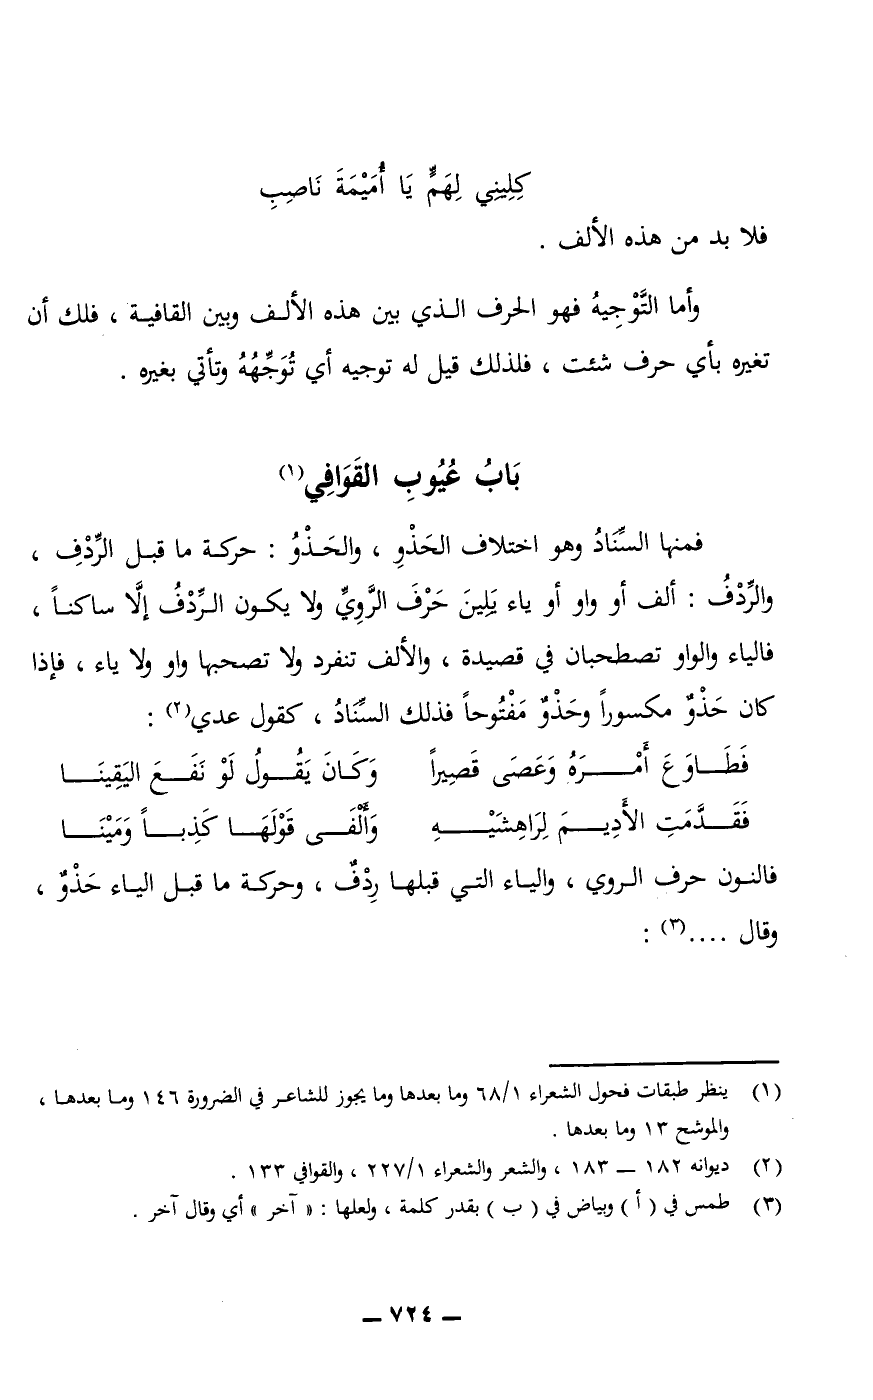 كِلِينِي لِهَمٍّ يَا أُمَيْمَةَ نَاصِبِ
فلا بد من هذه الألف .
وأما التَّوْجِيهُ فهو الحرف الـذي بين هذه الألـف وبين القافيـة ، فلك أن
تغيره بأي حرف شئت ، فلذلك قيل له توجيه أي تُوَجِّهُهُ وتأتي بغيره .
بَابُ عُيُوبِ القَوَافِي(١)
فمنها السِّنَادُ وهو اختلاف الحَذْوِ ، والحَـذْوُ : حركـة ما قبـل الرِّدْفِ ،
والرِّدْفُ : ألف أو واو أو ياء يَلِينَ حَرْفَ الرَّوِيِّ ولا يكـون الـرِّدْفُ إلَّا ساكنـاً ،
فالياء والواو تصطحبان في قصيدة ، والألف تنفرد ولا تصحبها واو ولا ياء ، فإذا
كان حَذْوٌ مكسوراً وحَذْوٌ مَفْتُوحاً فذلك السِّنَادُ ، كقول عدي(٢) :
فَطَـاوَعَ أَمْـرَهُ وَعَصَى قَصِيراً وَكَـانَ يَقُـولُ لَوْ نَفَـعَ اليَقِينَـا
فَقَـدَّمَتِ الأَدِيـمَ لِرَاهِشَيْـهِ وَأَلْفَـى قَوْلَهَـا كَذِبـاً وَمَيْنَـا
فالنـون حرف الـروي ، والياء التـي قبلهـا رِدْفٌ ، وحركـة ما قبل اليـاء حَذْوٌ ،
وقال ....(٣) :
(١) ينظر طبقات فحول الشعراء ٦٨/١ وما بعدها وما يجوز للشاعـر في الضرورة ١٤٦ ومـا بعدهـا ،
والموشح ١٣ وما بعدها .
(٢) ديوانه ١٨٢ — ١٨٣ ، والشعر والشعراء ٢٢٧/١ ، والقوافي ١٣٣ .
(٣) طمس في ( أ ) وبياض في ( ب ) بقدر كلمة ، ولعلها : « آخر » أي وقال آخر .
— ٧٢٤ —